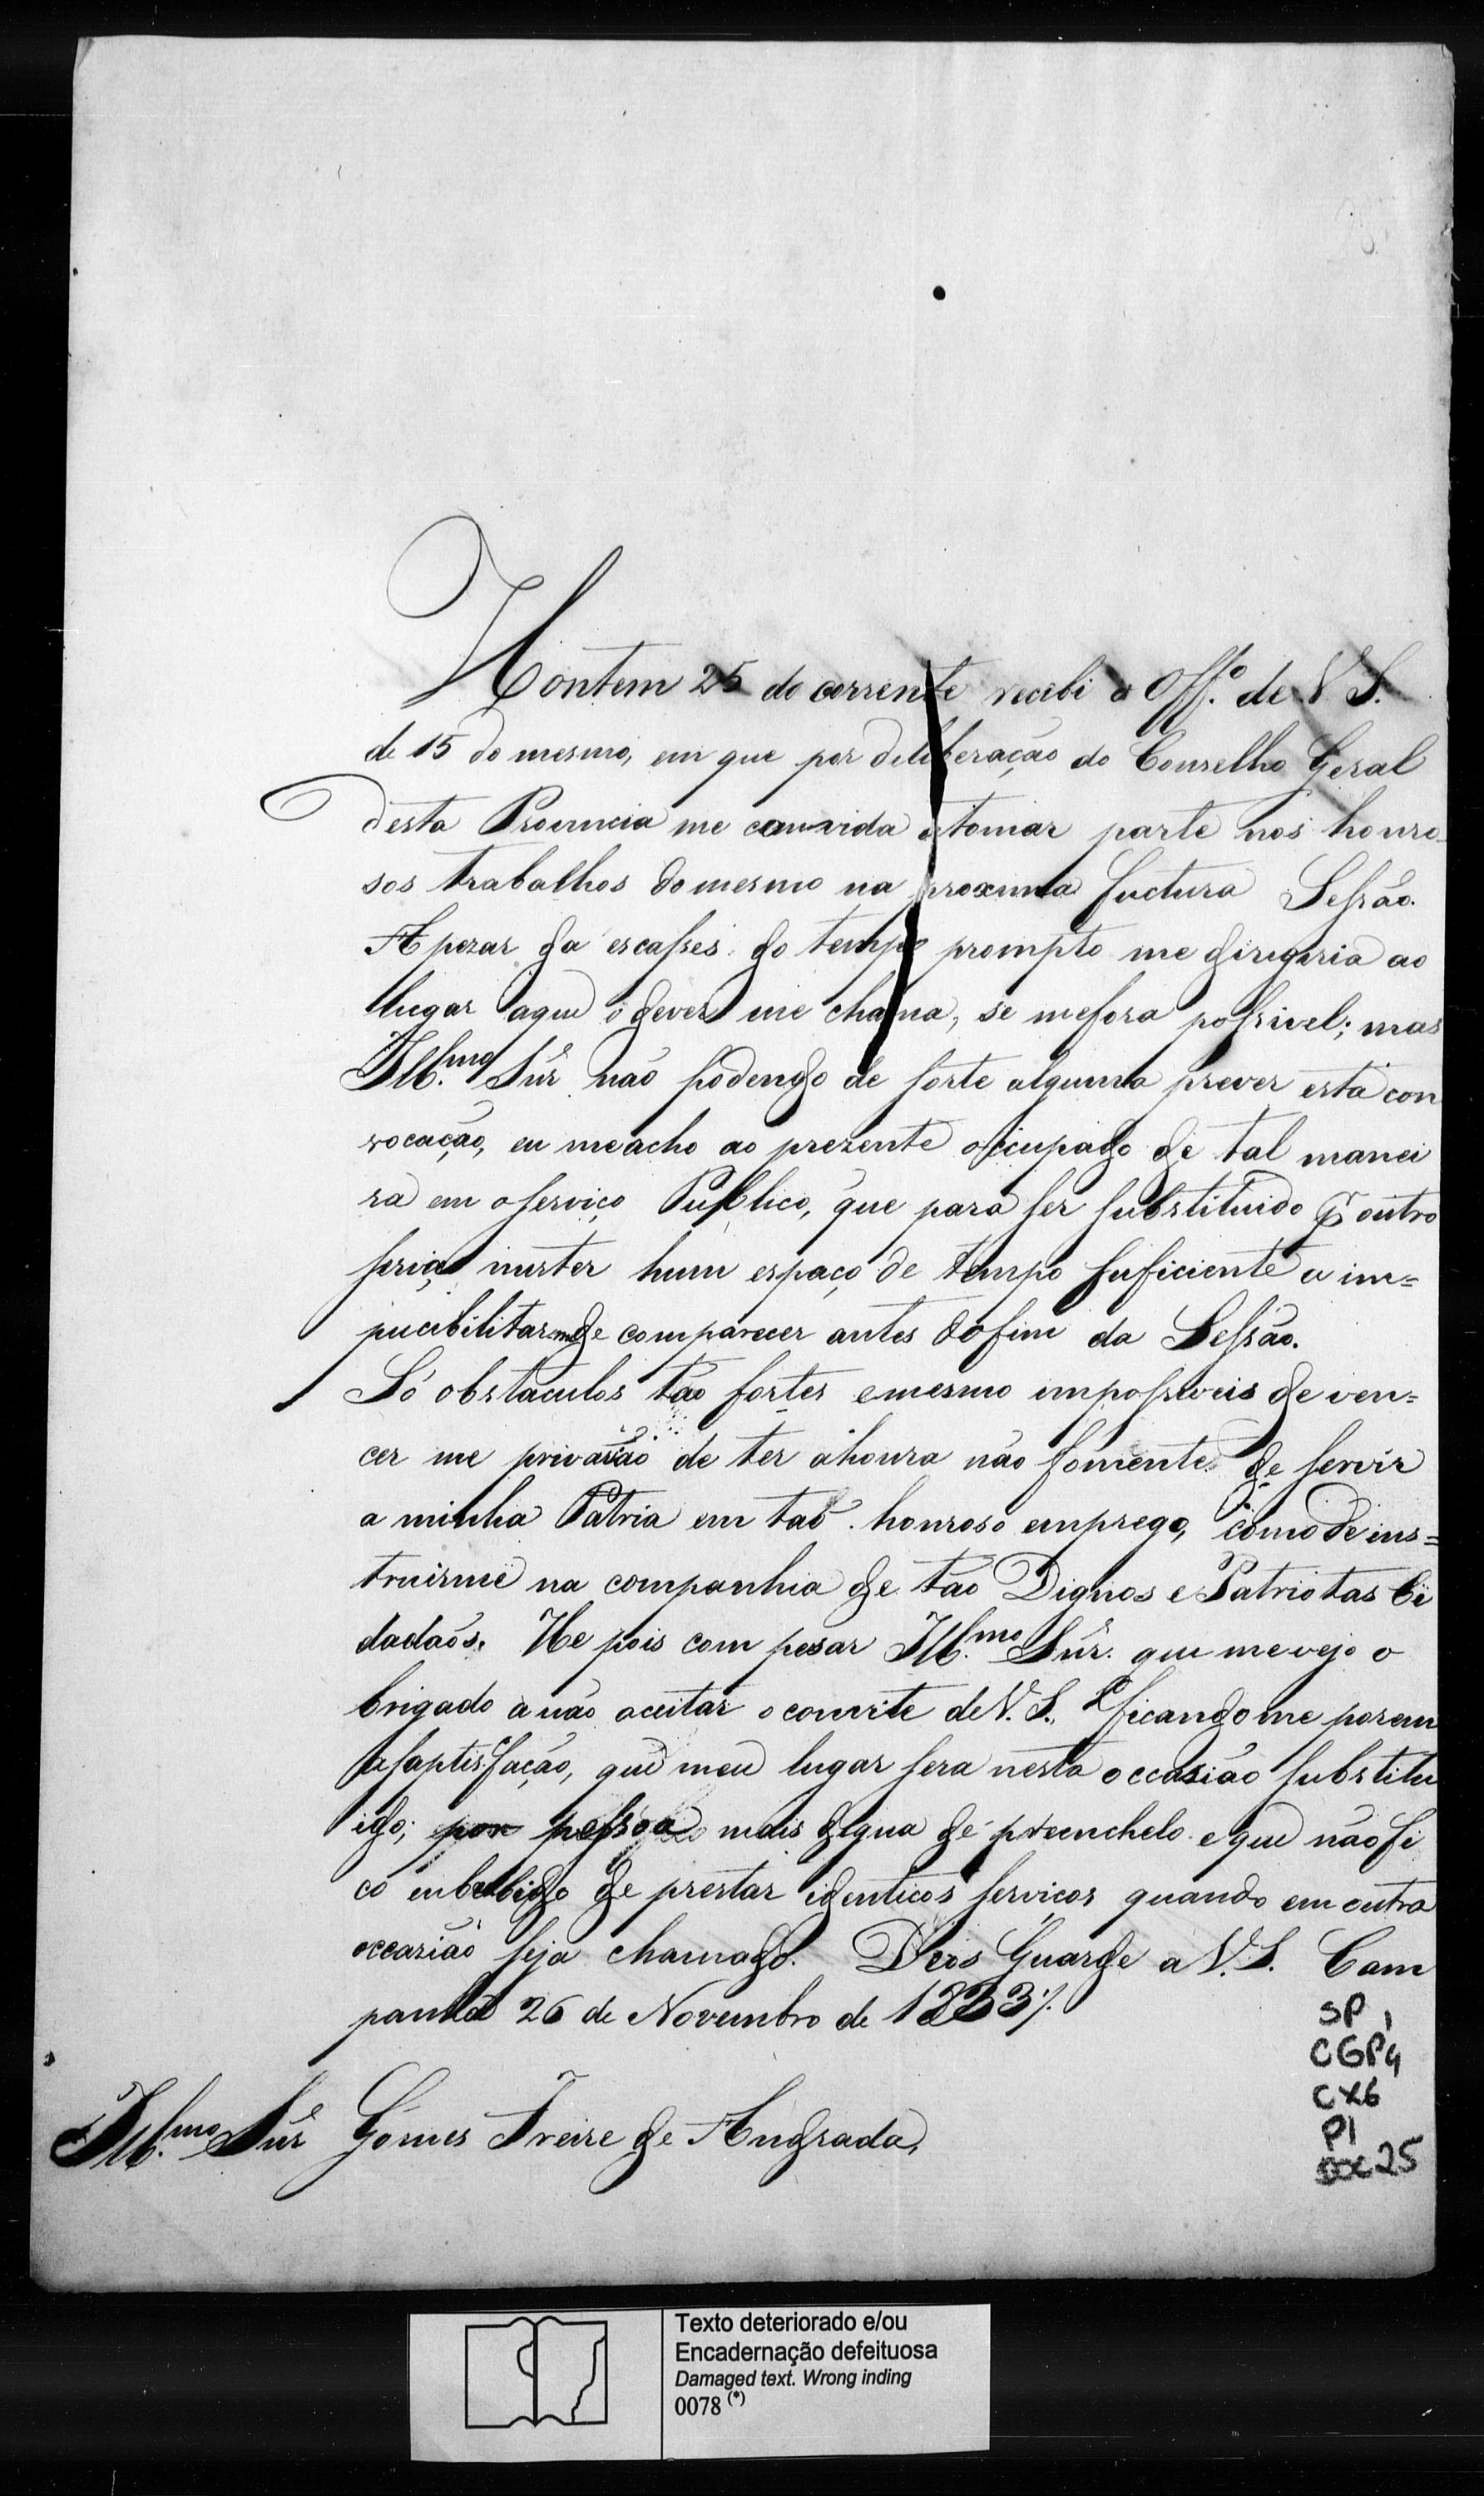 Hontem 25 do corrente recebi o Off.º de V S.
de 15 do mesmo, em que por deliberação do Conselho Geral
desta Provincia me convida atomar parte nos honro
sos trabalhos domesmo na proxima fuctura Sessão.
Apezar da escasses do tempo prompto me dirigiria ao
lugar aque o dever me chama, se mefora possivel; mas
Ill.mo Snr não podendo de sorte alguma prever esta con
vocação, eu meacho ao prezente occupado de tal manei
ra em oserviço Publico, que para ser substituido p outro
seria mister hum espaço de tempo suficiente a im=
pucibilitarme de comparecer antes dofim da Sessão.
Só obstaculos tão fortes emesmo impossiveis de ven=
cer me privarão de ter ahonra não somente de servir
a minha Patria em taõ honroso emprego, como de ins=
truirme na companhia de tão Dignos e Patriotas Ci
dadaõs. He pois com pesar Ill.mo Snr. que mevejo o
brigado anão aceitar oconvite de V. S., ficandome porem
asaptisfação, que meu lugar sera nesta occasião substitu
ido; por pessoa mais digna de preenchelo e que não fi
co enbebido de prestar identicos serviços quando em outra
occazião seja chamado. Deos Guarde a V. S. Cam
panha 26 de Novembro de 1833
Ill.mo Snr Gomes Freire de Andrada,
SP 1
CGP4
CX6
P1
DOC25
Texto deteriorado e/ou
Encadernação defeituosa
Damaged text. Wrong inding
0078 (*)